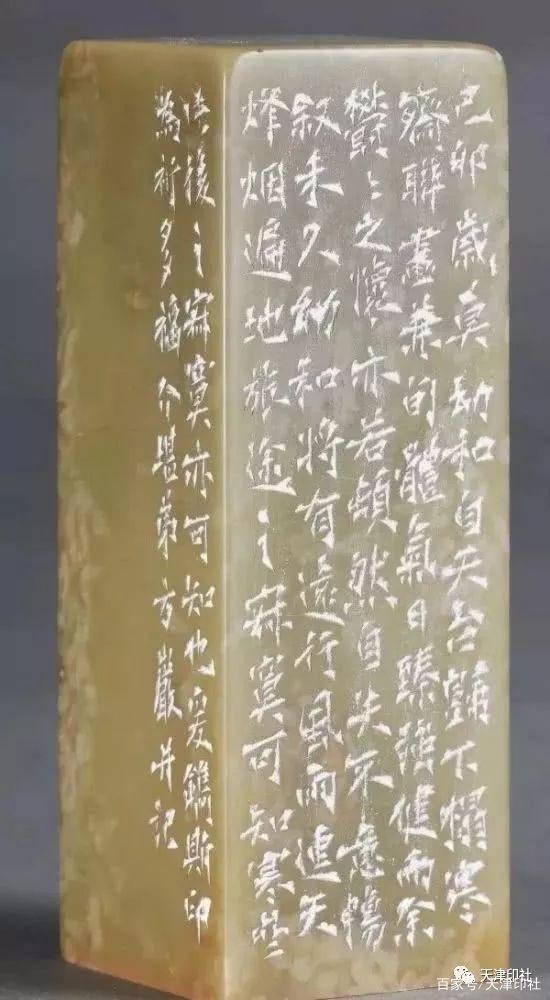 己卯歲莫和自天台歸下榻寒
齋聯畫兼旬體氣日臻強健而余
鬱〻之懷亦若頓然自失不意暢
叙未久和將有遠行風雨連天
烽烟遍地旅途之寂寞可知寒齋
後之寂寞亦可知也爰鐫斯印
為祈多福介堪弟方巖并記
天津印社
百家号/天津印社